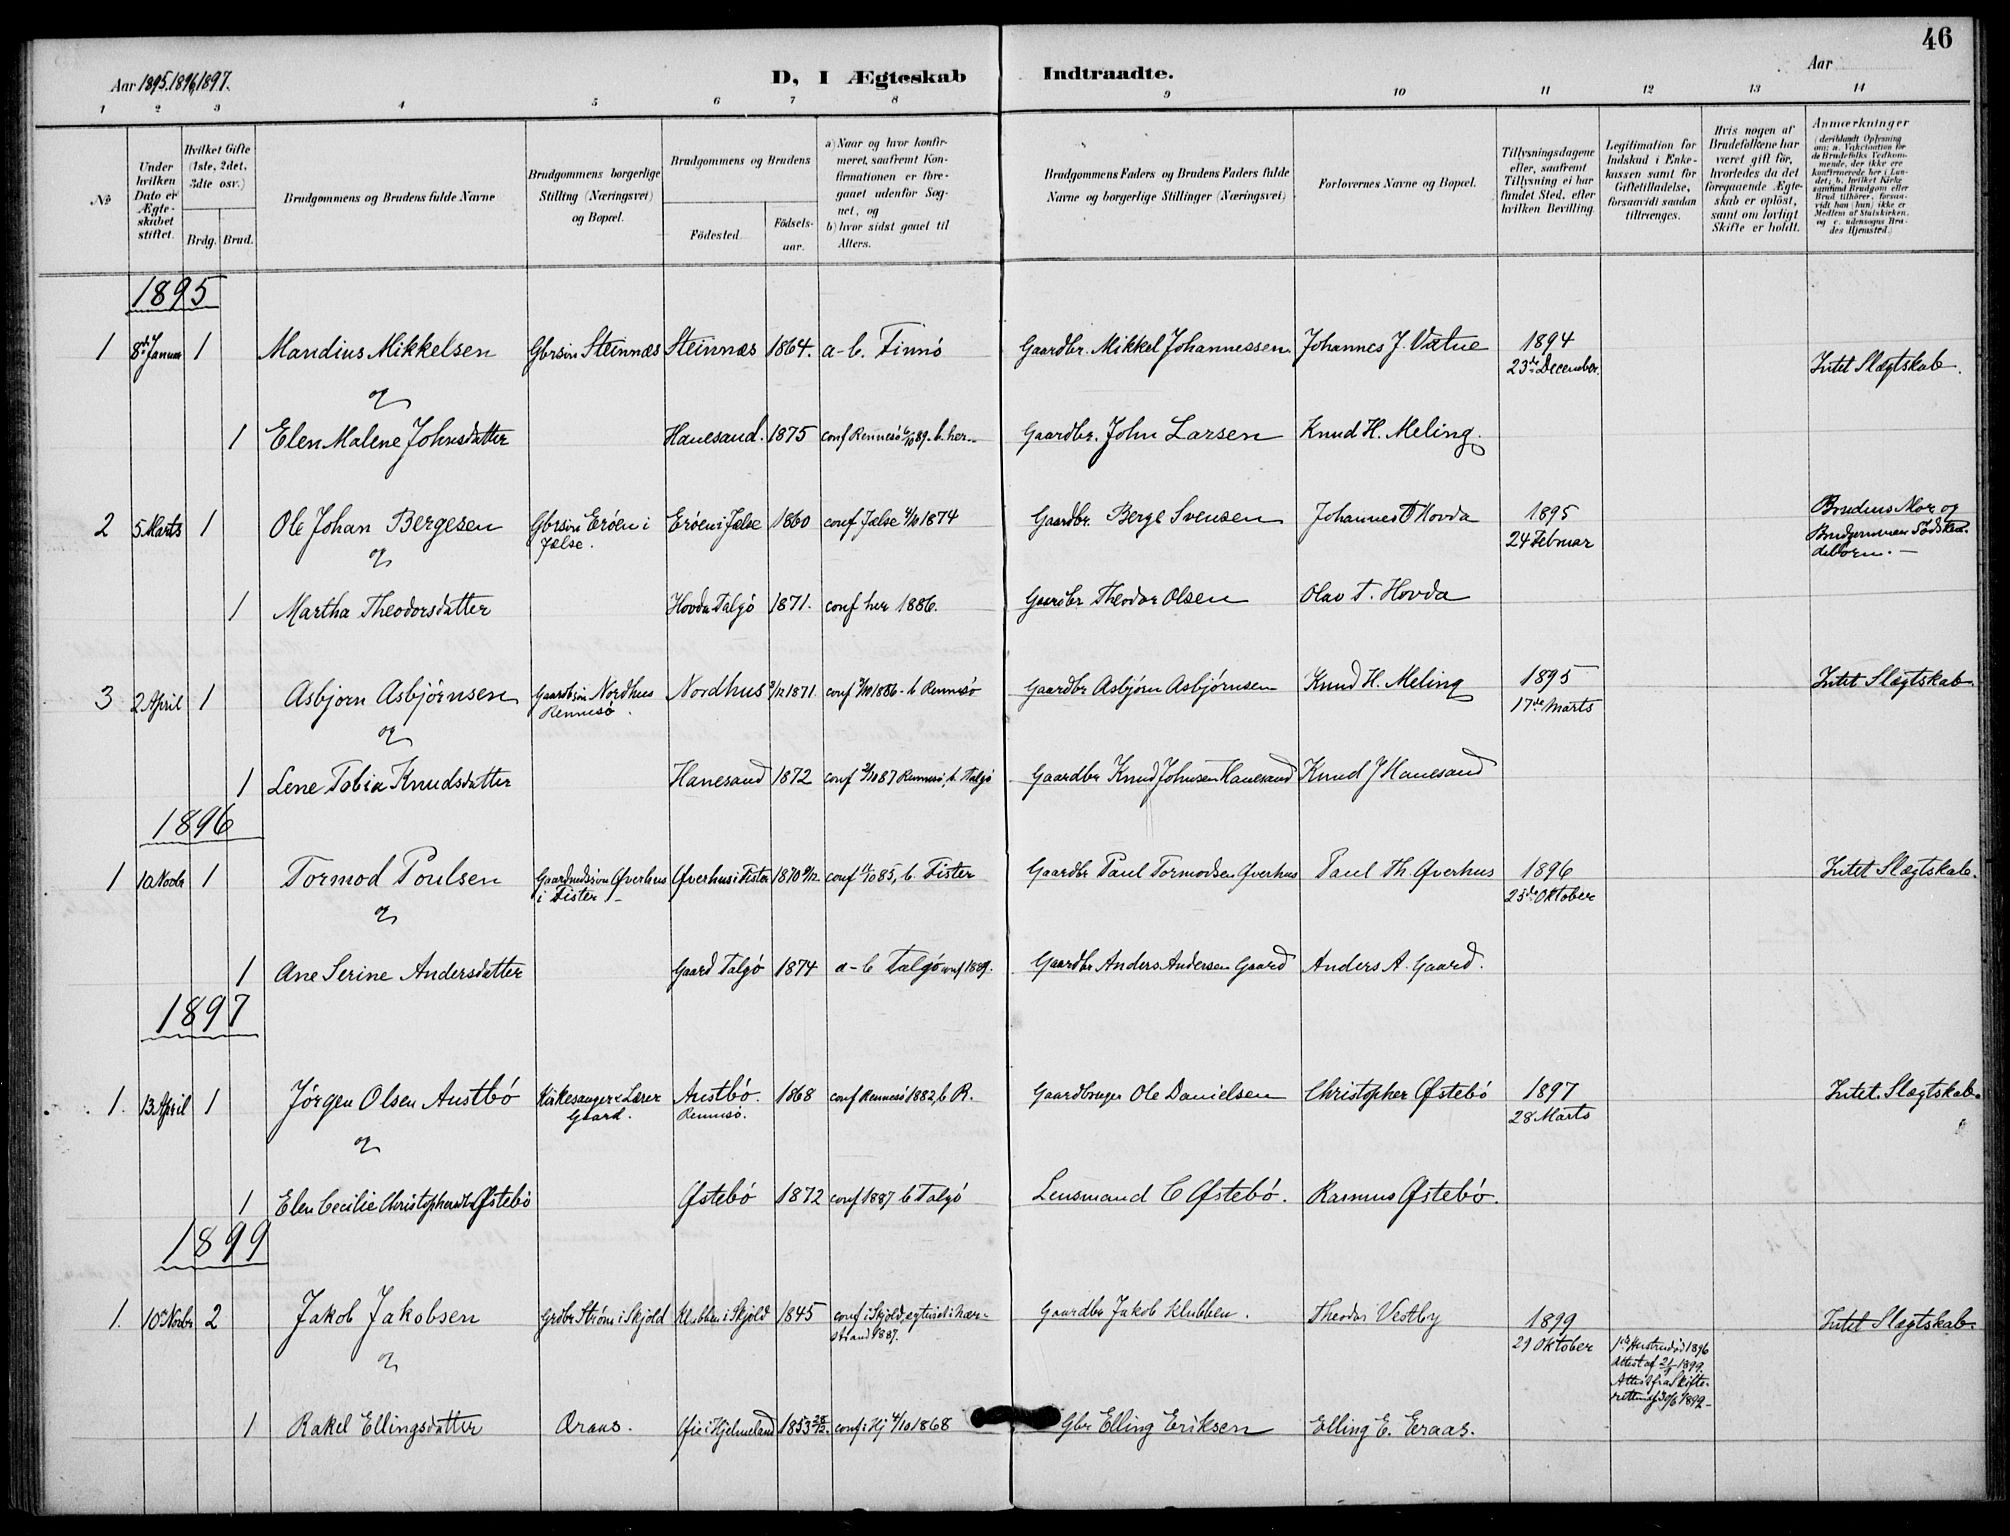 46
Aar 1895.1896,1897.
D, I Ægteskab Indtraadte.
Aar
1 2 3 4 5 6 7 8 9 10 11 12 13 14
No
Under hvilken Dato er Ægteskabet stiftet.
Hvilket Gifte (1ste, 2det, 3dte osv.)
Brdg. Brud.
Brudgommens og Brudens fulde Navne
Brudgommens borgerlige Stilling (Næringsvei) og Bopæl.
Brudgommens og Brudens
Födested.
Födselsaar.
a) Naar og hvor konfirmeret, saafremt Konfirmationen er foregaaet udenfor Sognet, og
b) hvor sidst gaaet til Alters.
Brudgommens Faders og Brudens Faders fulde Navne og borgerlige Stillinger (Næringsvei)
Forlovernes Navne og Bopæl.
Tillysningsdagene eller, saafremt Tillysning ei har fundet Sted, efter hvilken Bevilling.
Legitimation for Indskud i Enkekassen samt for Giftetilladelse, forsaavidt saadan tiltrænges.
Hvis nogen af Brudefolkene har været gift för, hvorledes da det foregaaende Ægteskab er oplöst, samt om lovligt Skifte er holdt.
Anmærkninger (deriblandt Oplysning om: a. Vakcination for de Brudefolks Vedkommende, der ikke ere konfirmerede her i Landet; b. hvilket Kirkesamfund Brudgom eller Brud tilhörer, forsaavidt han (hun) ikke er Medlem af Statskirken, og c. udensogns Brudes Hjemsted.)
1895
1 8de Januar 1 Mandius Mikkelsen Gbrsön Steinnæs Steinnæs 1864. a-b. Finnö Gaardbr. Mikkel Johannessen Johannes J. Vatne 1894
23de December. Intet Slægtskab.
og
1 Elen Malene Johnsdatter Hanesand. 1875 conf Rennesö 6/10 89. b. her Gaardbr. John Larsen Knud H. Meling.
2 5 Marts 1 Ole Johan Bergesen Gbrsön Eröen i Jælse. Eröen i Jælse 1860 conf Jælse 4/10 1874 Gaardbr. Berge Svensen Johannes T Hovda 1895
24 Februar Brudens Mor og Brudgommen Södskendebörn.
og
1 Martha Theodorsdatter Hovda Talgö 1871. conf her 1886. Gaardbr Theodor Olsen Olav T. Hovda
3 2 April 1 Asbjorn Asbjörnsen Gaardbsön Nordhus Rennesö. Nordhus 1871. conf 1886 - b Rennesö Gaardbr Asbjörn Asbjörnsen Knud H. Meling 1895
17de Marts Intet Slægtskab
og
1 Lene Tobia Knudsdatter Hanesand 1872 conf 2/10 87 Rennesö, b. Talgö Gaardbr Knud Johnsen Hanesand Knud J Hanesand
1896
1 10 Novbr 1 Tormod Poulsen Gaardmdssön Øverhus i Fister Øverhus i Fister 1870 conf 85, b. Fister Gaardbr Paul Tormodsen Øverhus Paul Th. Øverhus 1896
25de Oktober Intet Slægtskab.
og
1 Ane Serine Andersdatter Gaard Talgö 1874 a-b Talgö conf 1889. Gaardbr Anders Andersen Gaard Anders A. Gaard.
1897
1. 13 April 1 Jörgen Olsen Austbö Kirkesanger & Lærer Gaard. Austbö. Rennesö. 1868 conf Rennesö 1882, b R. Gaardbruger Ole Danielsen Christopher Østebö 1897
28 Marts Intet Slægtskab.
og
1 Elen Cecilie Christophersdtr Østebö Østebö 1872 conf 1887 b Talgö Lensmand C Østebö. Rasmus Østebö.
1899
1. 10de Novbr 2 Jakob Jakobsen Grdbr Ström i Skjold Klubben i Skjold 1845 conf i Skjold, Gaardbr Jakob Klubben. Theodor Vestby 1899
29 Oktober 1ste Hustru död 1896
Attest af 1899.
Attest fra Skifteretten Intet Slægtskab.
og
1 Rakel Ellingsdatter Øraas. Øie i Hjelmeland 1853 28/12. conf i Hj 4/10 1868 Gbr Elling Eriksen Elling E. Eraas.